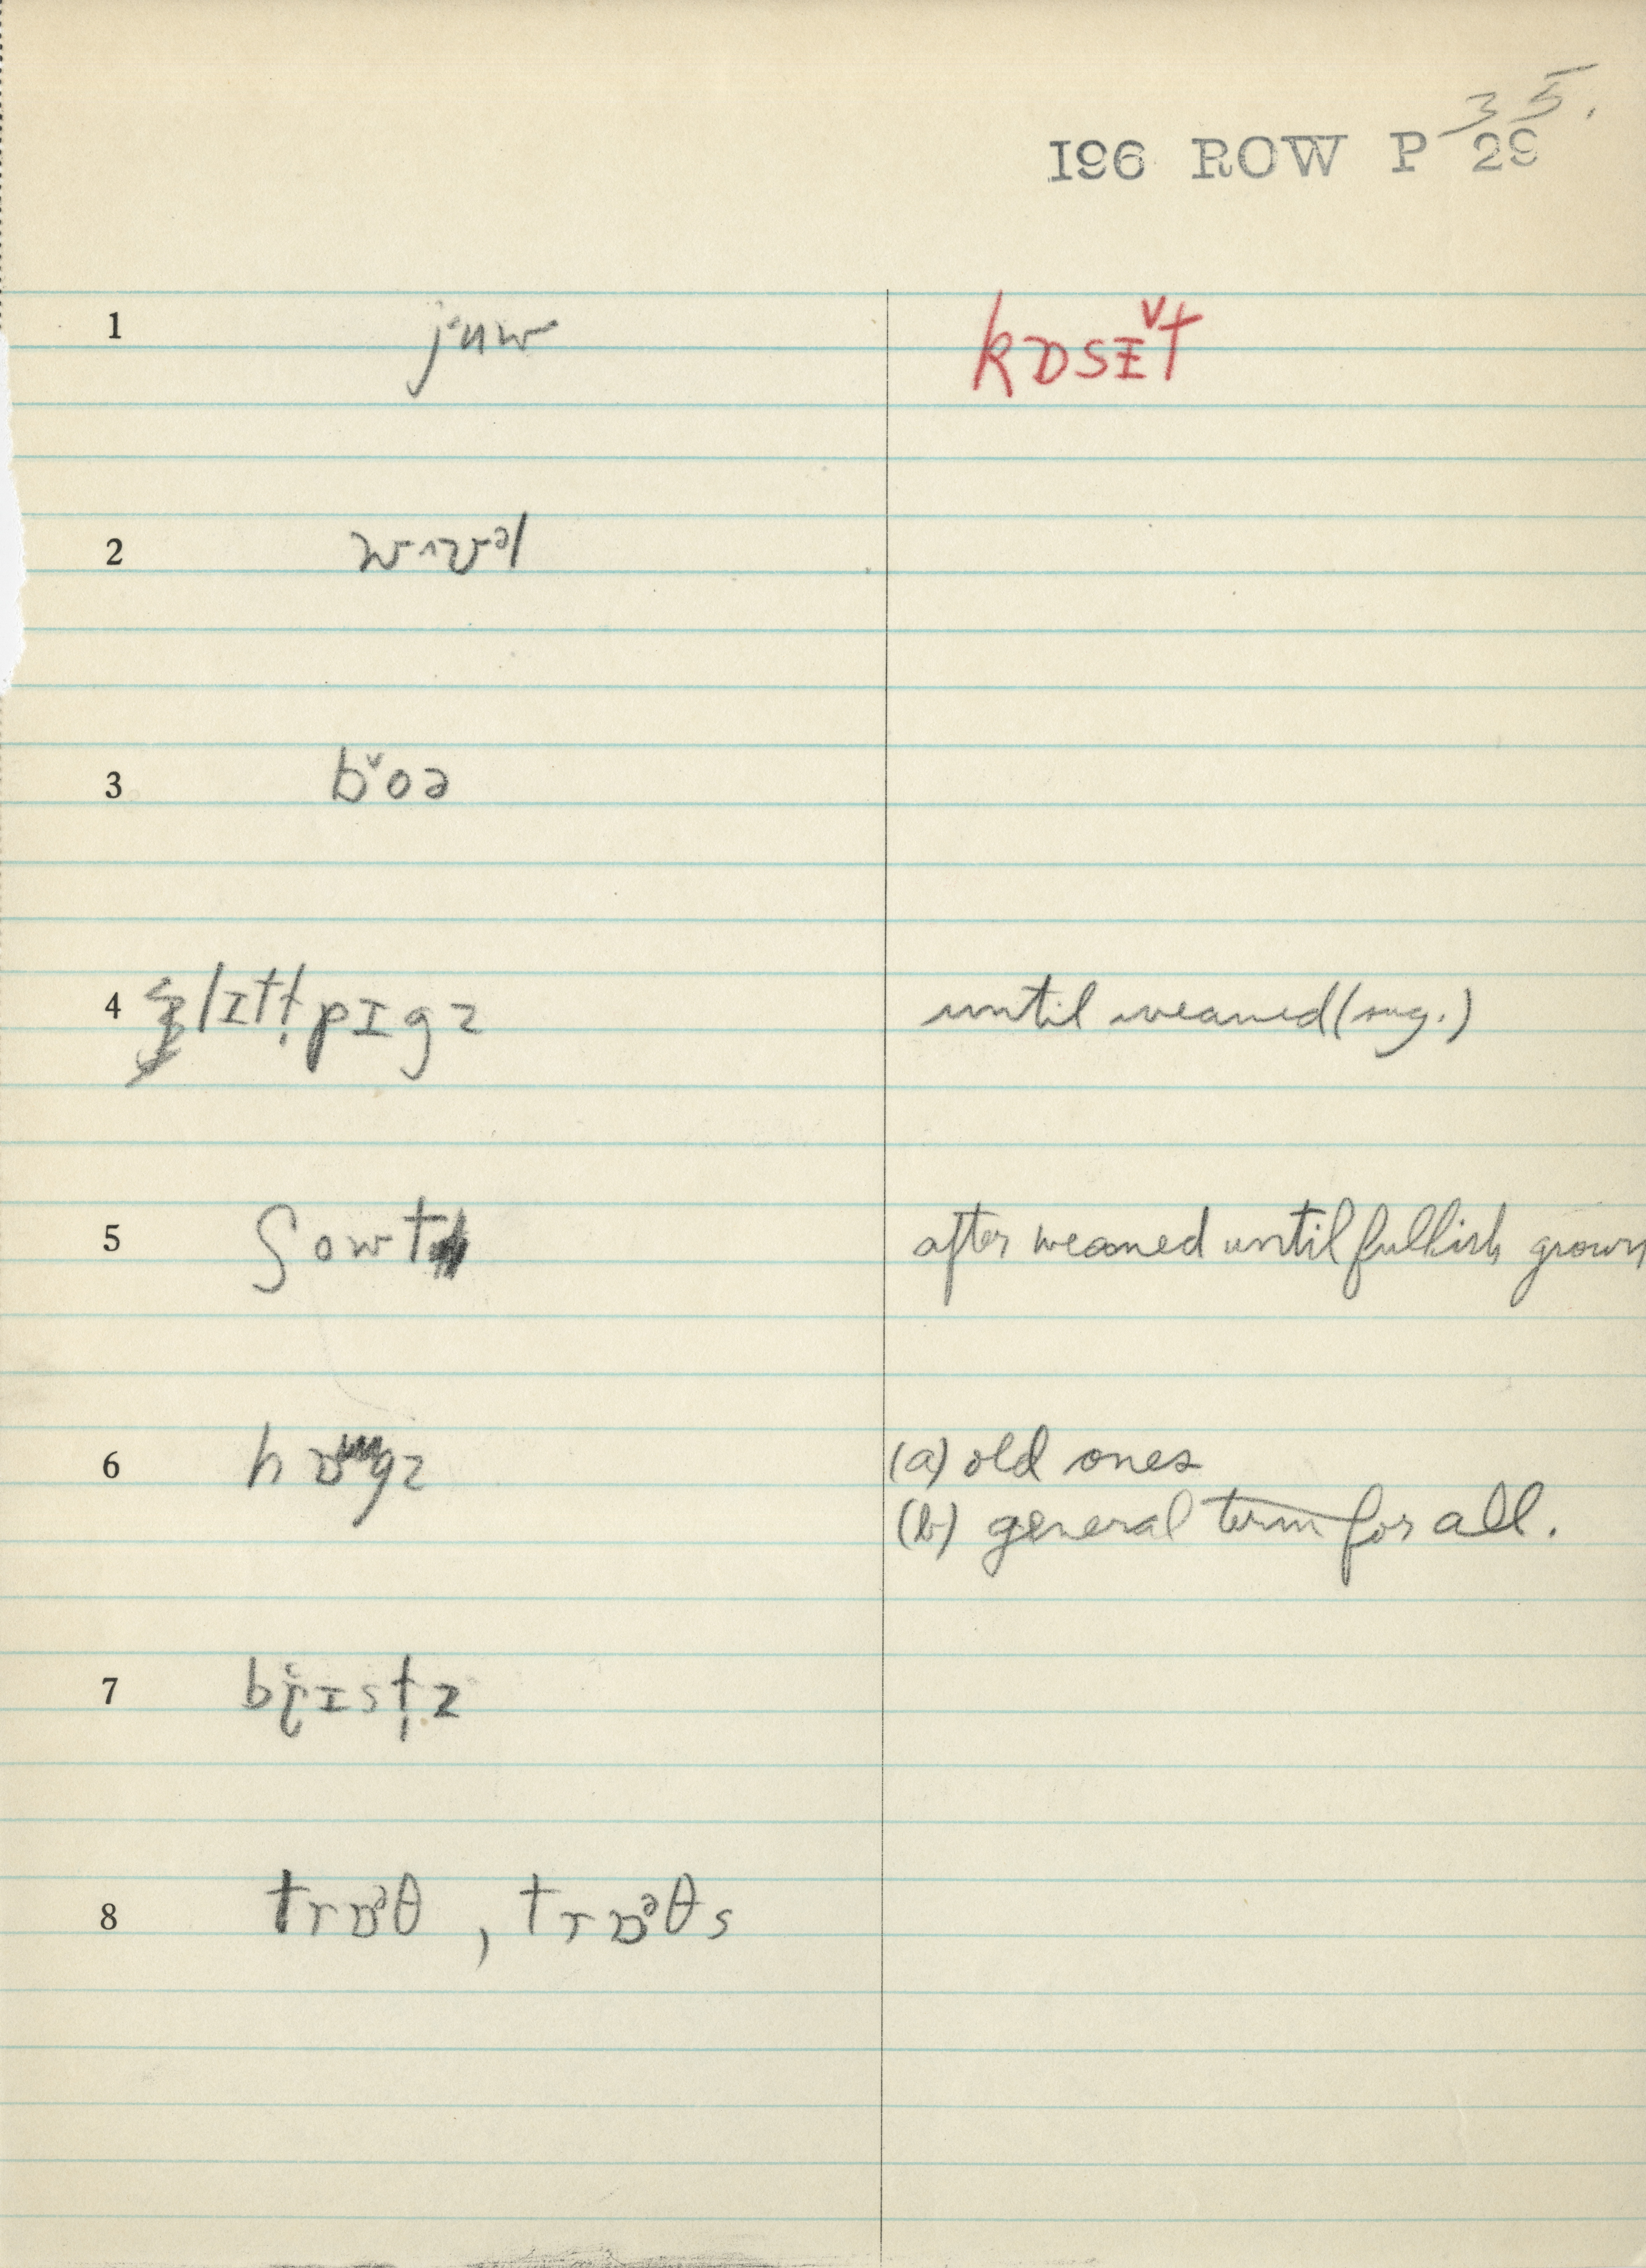 35.
I96 ROW P 29
1 juw kɒsɪ̬t
2 wɪvᵊl
3 b̬oə
4 lɪtt̩ pɪgz until weaned (sug.)
5 ʃowt after weaned until fullish grown
6 hɒgz (a) old ones
(b) general term for all.
7 bɪst̩z
8 trɒᵊθ , trɒᵊθs